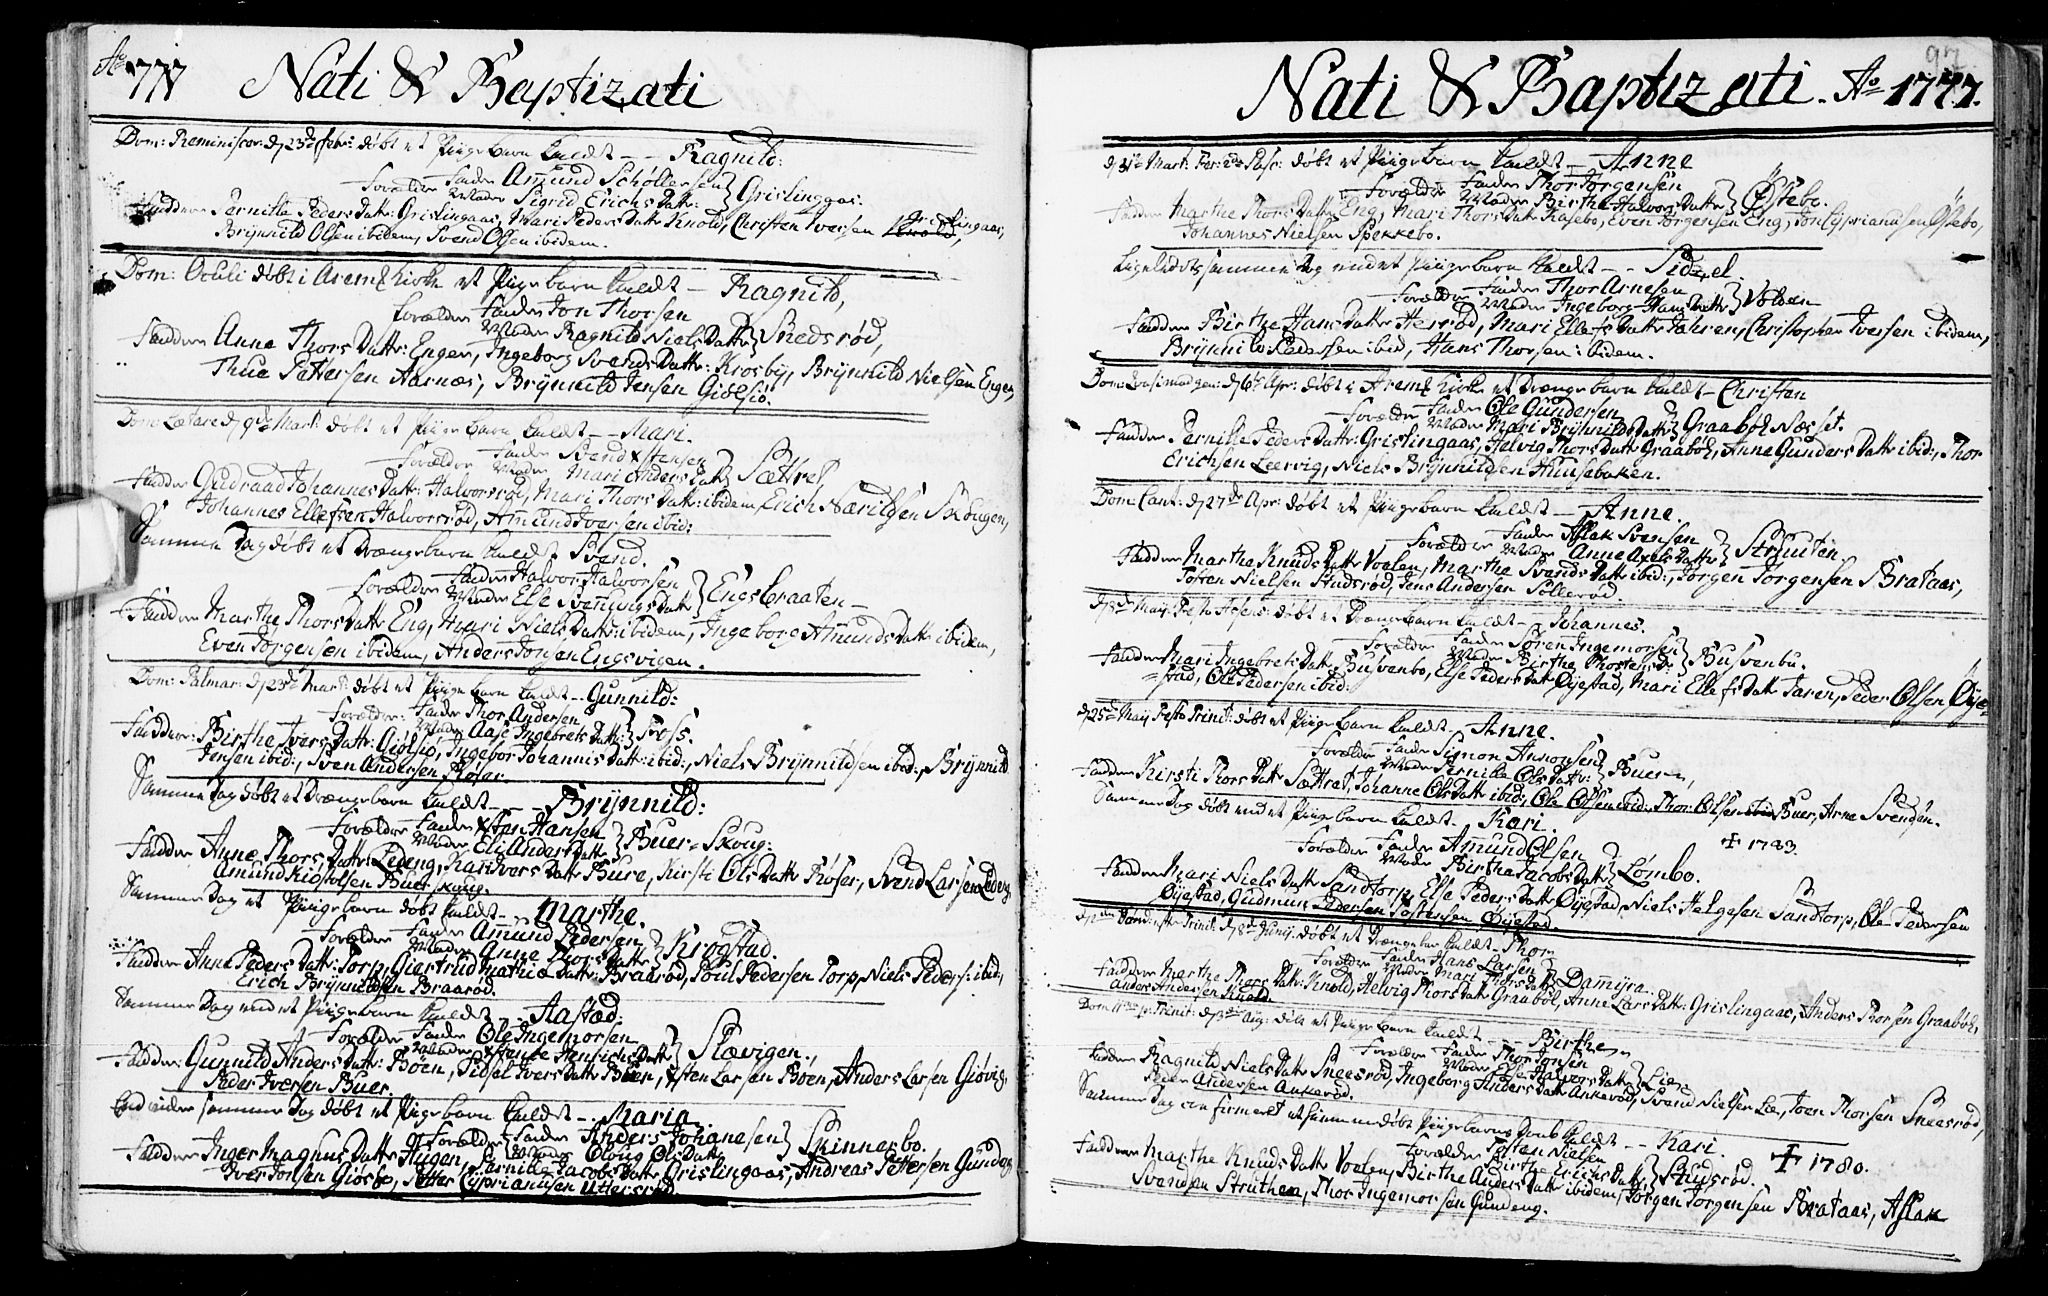 Ao 1777 Nati & Baptizati
Dom: Reminiscer: d 23de febr: döbt et Piigebarn kaldt - - Ragnild:
Forældre Fader Amund Schöllersen
Moder Sigrid Erichs Datter } Grislinggas:
Faddere Pernille Peders Datt: Grislingaas, Mari Peders Datt Knold, Christen Iversen Grislingaas,
Brynnild Olsen ibidem, Svend Olsen ibidem.
Dom: Oculi döbt i Aremk Kirke et Piigebarn kaldt - Ragnild,
Forældre Fader Jon Thorsen
Moder Ragnild Niels Datt } Snedsröd,
Faddere Anne Thors Datt: Engen, Ingeborg Svends Datt: Krosby, Brynnild Nielsen Engen
Thue Pettersen Aarnæs, Brynnild Jensen Giölsiö.
Dom: Lætare d 9de Mart: döbt et Piigebarn kaldt - - Mari.
Forældre Fader Svend Xstensen
Moder Mari Anders Datt } Sættret,
Faddere Gudraad Johannes Datt: Halvorsröd, Mari Thors Datt: ibidem Erich Nærildsen Skougen,
Johannes Ellefsen Halvorsröd, Amund Iversen ibid:
Samme Dag döbt et Drængebarn kaldt Svend.
Forældre Fader Halvor Halvorsen
Moder Else Svennungs Datt } Engsbraaten -
Faddere Marthe Thors Datt Eng, Mari Niels Datt: ibidem, Ingeborg Amunds Datt ibidem,
Even Jorgensen ibidem, Anders Jonsen Engsvigen.
Dom: Palmar: d 23de Mart: döbt et Piigebarn kaldt - - Gunnild:
Forældre: Fader Thor Andersen
Moder Aase Ingebrets Datt: } Foss.
Faddere: Birthe Ivers Datt: Giölsiö, Ingebor Johannis Datt: ibid:, Niels Brynnildsen ibid:, Brynnild
Jensen ibid:, Sven Andersen Röser.
Samme Dag döbt et Drængebarn kaldt - - - Brynnild:
Forældre Fader Xsten Hansen
Moder Eli Anders Datt } Buer-Skoug:
Faddere Anne Thors Datt: Ledeng, Kari Ivers Datt Bure, Kirsti Ols Datt Röser, Svend Larsen Ledeng
Amund Kiostolsen Buerskoug.
Samme Dag et Piigebarn döbt kaldt - - Marthe.
Forældre Fader Amund Pedersen
Moder Anne Thors Datt } Krogstad.
Faddere Anne Peders Datt: Torp, Giertrud Mathiæ Datt: Braaröd, Poul Pedersen Torp, Niels Peders: ibid:,
Erich Brynnildsen Braaröd.
Samme Dag end et Piigebarn kaldt - - Aastad:
Forældre Fader Ole Ingemorsen
Moder Xstense Henrichs Datt } Slævigen.,
Faddere: Gunnild Anders Datt: Böen, Sidsel Ivers Datt Buer, Xsten Larsen Böen, Anders Larsen Giövig,
Peder Iversen Buer.
End videre samme Dag döbt et Piigebarn kaldt - . Maria
Forældre Fader Anders Johanesen
Moder Eloug Ols Datt } Skinnerbo.
Faddere Inger Magnus Datt Haugen, Pernille Jacobs Datt Grislingaas, Andreas Pettersen Gundeng
Iver Jonsen Giösbo, Petter Cyprianusen Uttersröd.
97.
Nati & Baptizati. Ao 1777.
d 31te Mart: Fer: 2da Pasc: döbt et Piigebarn kaldt - Anne
Forældre Fader Thor Jorgensen
Moder Birthe Halvors Datt } Östebo.
Faddere Marthe Thors Datt Eng, Mari Thors Datt Kasebo, Even Jorgensen Eng, Jon Cyprianusen Östebo,
Johannes Nielsen Spekkebo.
Ligeledes sammen Dag end et Piigebarn kaldt - - Sidzel.
Forældre Fader Thor Arnesen
Moder Ingeborg Hans Datt } Volden
Faddere Birthe Hans Datt Herröd, Mari Ellefs Datt Jahren, Christopher Iversen ibidem,
Brynnild Pedersen ibid, Hans Thorsen ibidem.
Dom: Qvasimodogen: d 6te Apr: döbt i Aremk Kirke et Drængebarn kaldt - Christen
Forældre Fader Ole Gundersen
Moder Mari Brynnilds Datt } Graaböl Næsset.
Faddere Pernille Peders Datt: Grislingaas, Helvig Thors Datt Graaböl, Anne Gunders Datt ibid:, Thor
Erichsen Leervig, Niels Brynnildsen Huusebaken.
Dom: Cant: d 27de Apr: döbt et Piigebarn kaldt - Anne.
Forældre Fader Aslak Svensen
Moder Anne Axels Datt } Struten,
Faddere Marthe Knuds Datt Voelen, Marthe Svends Datt ibid:, Jorgen Jorgensen Brataas,
Toren Nielsen Studsröd, Jens Andersen Tolleröd
d 8de Maij Festo Ascens: döbt et Drængebarn kaldt - Johannes.
Forældre Fader Sören Ingemorsen
Moder Birthe Thorsters D: } Busvenbu.
Faddere Mari Ingebrets Datt Busvenbo, Else Peders Datt Öyestad, Mari Ellefs Datt Jaren, Peder Olsen Öye-
=stad, Ole Pedersen ibid:
d 25de Maij Festo Trinit: döbt et Piigebarn kaldt - Anne.
Forældre Fader Simon Amonsen
Moder Pernille Ols Datt: } Buer,
Faddere Kirsti Thors Datt Sættret, Johanne Ols Datt ibid:, Ole Olsen ibid: Thor: Olsen ibid Buer, Arne Svendsen.
Samme Dag döbt end et Piigebarn kaldt . Kari.
Forældre Fader Amund Olsen
Moder Birthe Jacobs Datt } Lömbo. + 1783.
Faddere Mari Niels Datt Sandtorp, Else Peders Datt Öijestad, Niels Helgesen Sandtorp, Ole Pedersen
Öijestad, Gudmun Pedersen Tostensen Öijestad.
d 2den Dom: efter Trinit: d 8de Junij: döbt et Drængebar kaldt - Thor
Forældre Fader Hans Larsen
Moder Mari Thors Datt } Dammyra.
Faddere Marthe Thors Datt: Knold, Helvig Thors Datt Graaböl, Anne Lars Datt: Grislingaas, Anders Thorsen Graaböl,
Anders Andersen Knold.
Dom: 10ma p: Trinit: d 3die Aug: döbt et Piigebarn kaldt - Birthe
Forældre Fader Thor Jonsen
Moder Else Halvors Datt } Lier
Faddere Ragnild Niels Datt Sneesröd, Ingeborg Anders Datt Ankeröd, Svend Nielsen Lie, Joen Thorsen Sneesröd,
Peder Andersen Ankeröd.
Samme Dag confirmeret et hiemmedöbt Piigebarns Daab kaldt - - Kari.
Forældre Fader Toren Nielsen
Moder Birthe Erichs Datt } Studsröd. + 1780.
Faddere Marthe Knuds Datt Voelen, Birthe Anders Datt ibidem, Jorgen Jorgensen Brataas, Aslak
Svendsen Struthen, Thor Ingemorsen Gundeng.